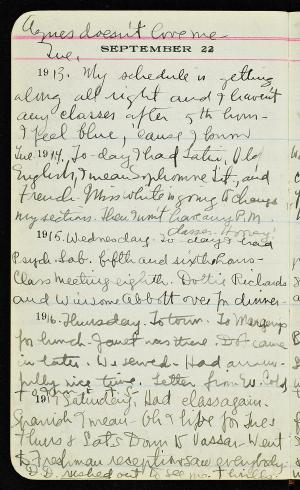 Agnes doesn't love me
Tue.
SEPTEMBER 22
1913. My schedule is getting
along all right and I haven't
any classes after 5th hour-
I feel blue, 'cause I know
Tue 1914. To-day I had Latin, Old
English, I mean sophomore Lit, and
French. Miss White is going to change
my sections. Then I won't have any P.M.
classes. Hooray!
1915. Wednesday. To-day I had
Psych Lab. fifth and sixth hours-
Class meeting eighth. Dottie Richards
and Winsome Abbott over for dinner-
1916. Thursday. To town. To Margery's
for lunch. Janet was there. Dot came
in later. We sewed. Had an aw-
fully nice time. Letter from W.
1917 Saturday. Had class again-
Spanish I mean- Oh a life for Tues
Thurs & Sats Down to Vassar- Went
to Freshman reception & saw everybody-
D.D. rushed out to see me. Thrills-